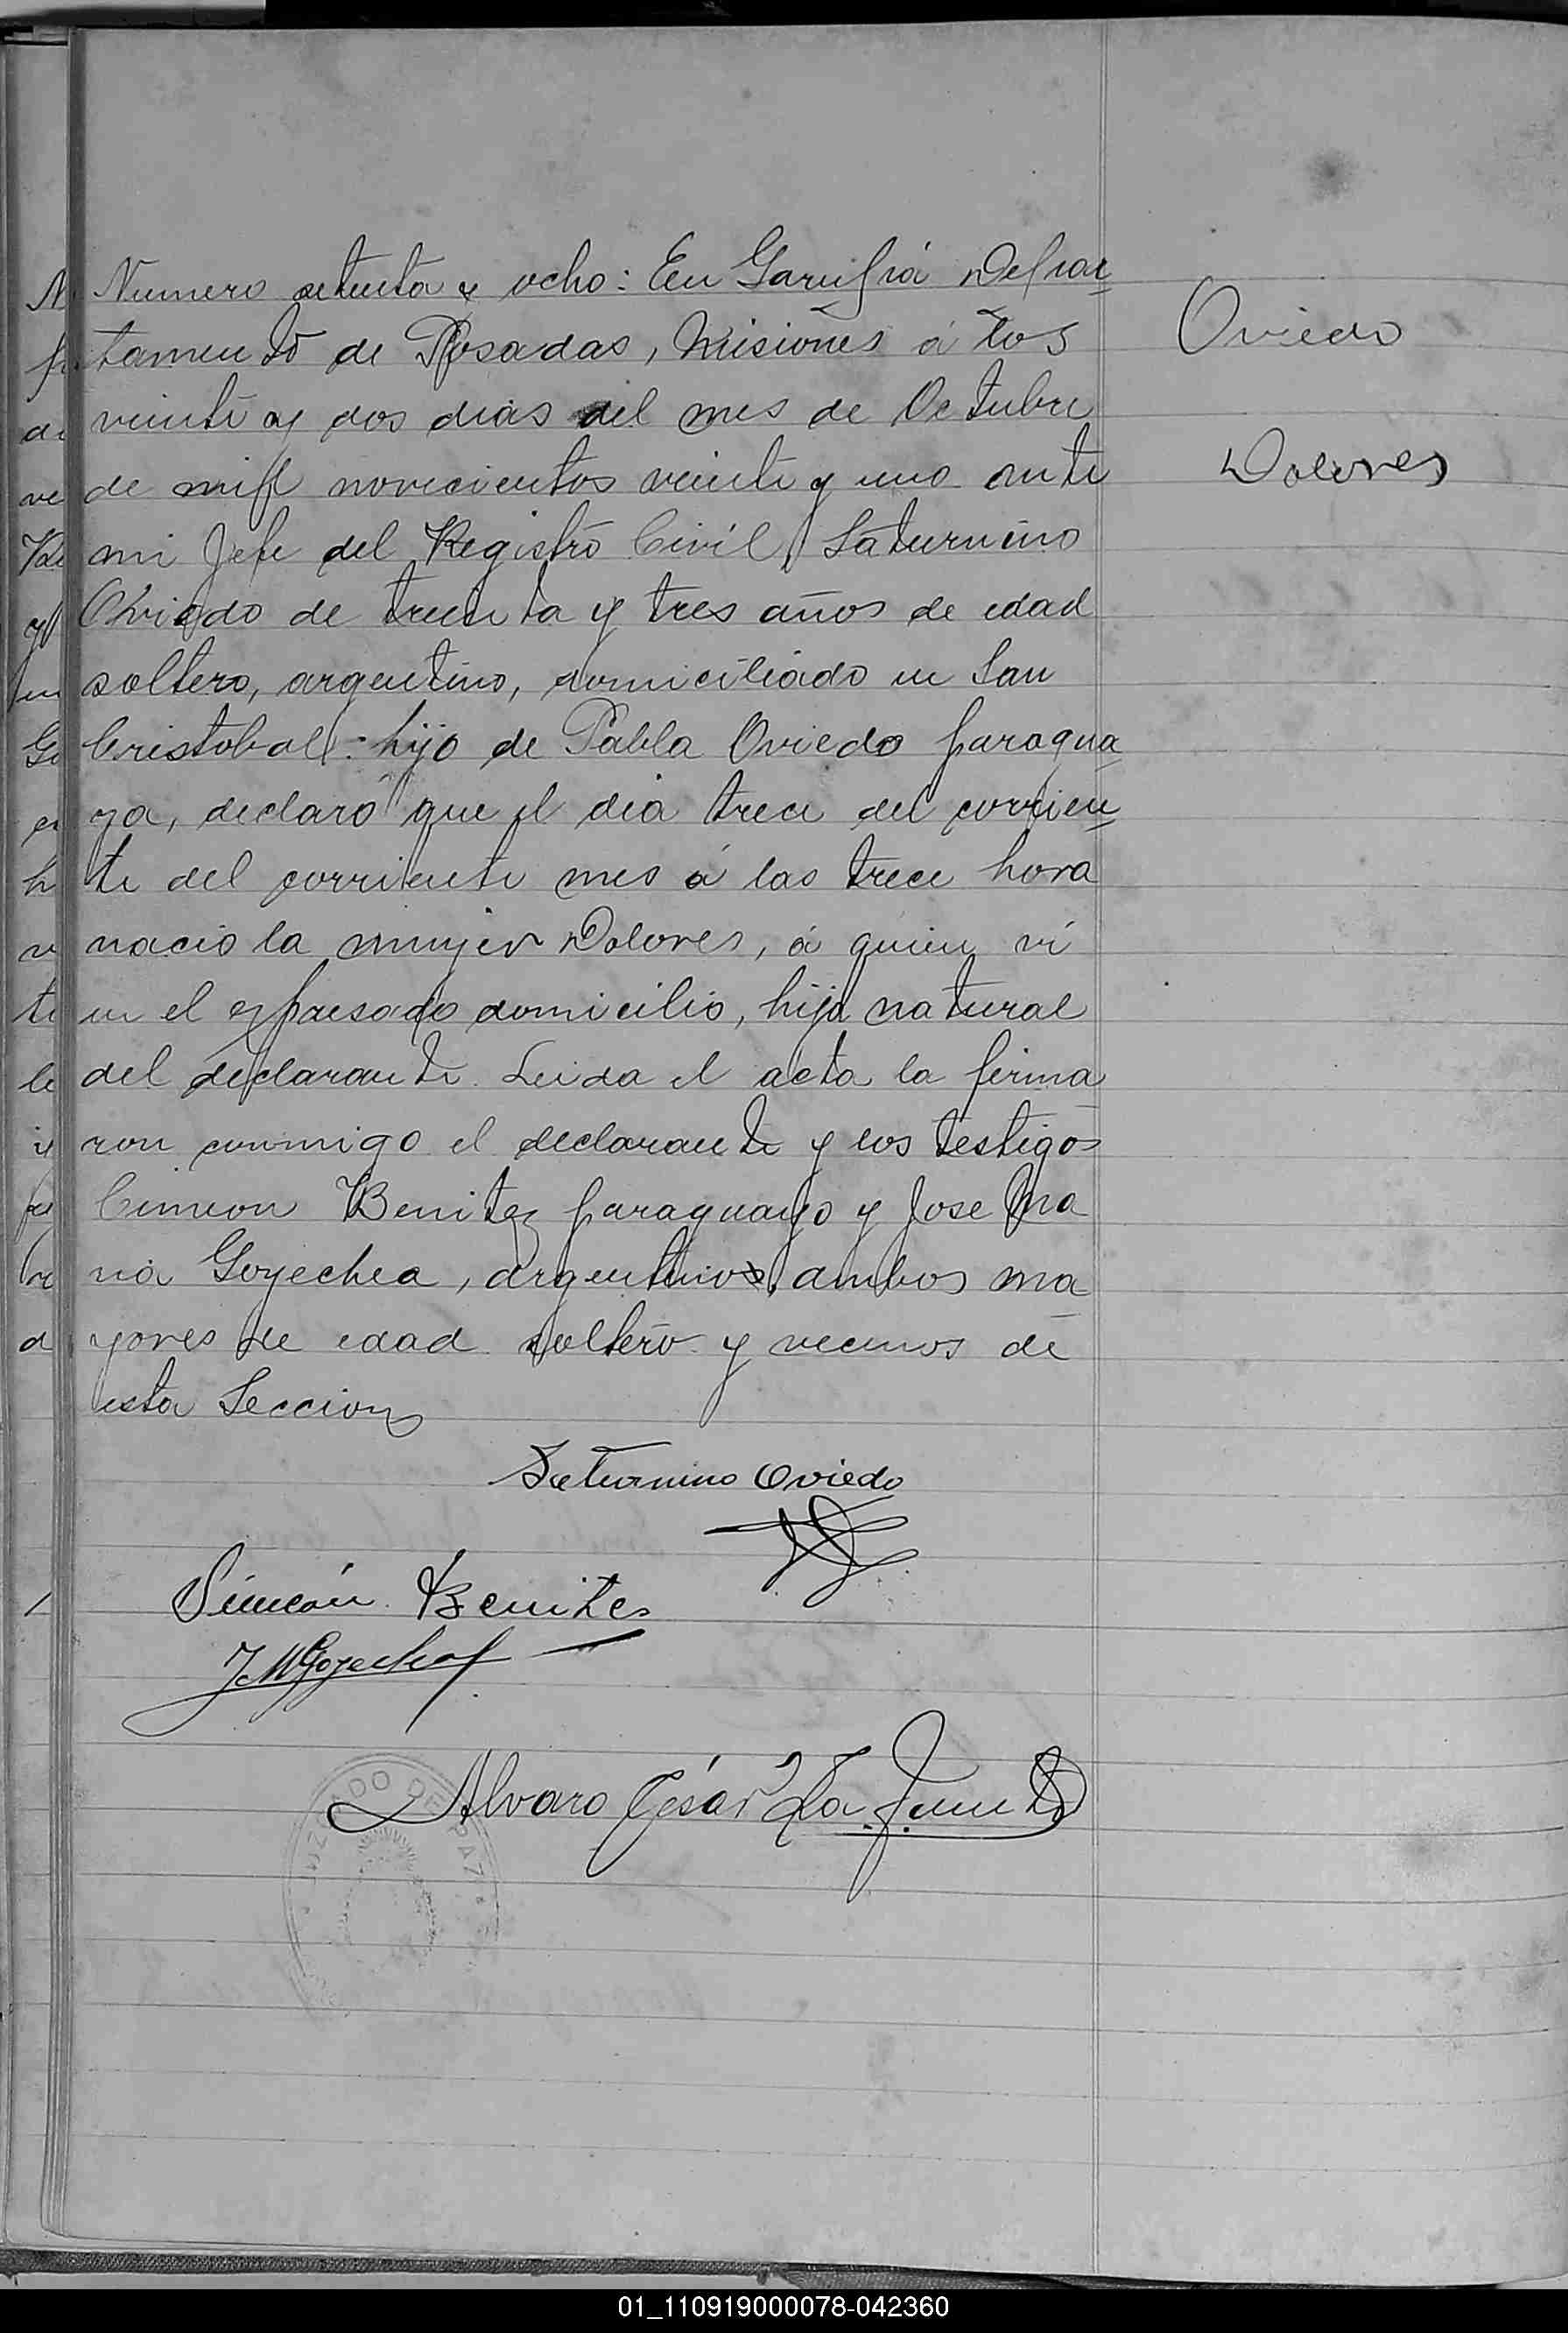 Numero setenta y ocho: En Garupá Depar-
tamento de Posadas, Misiones á los
veinte y dos dias del mes de Octubre
de mil novecientos veinte y uno ante
mi Jefe del Registro Civil, Saturnino
Oviedo de treinta y tres años de edad
soltero, argentino, domiciliado en San
Cristobal: hijo de Pabla Oviedo paragua-
ya, declaró que el dia trece del corrien-
te del corriente mes á las trece hora
nacio la mujer Dolores, á quien ví
en el expresado domicilio, hija natural
del declarante. Leida el acta la firma
ron conmigo el declarante y los testigos
Cimeon Benitez paraguayo y Jose Ma
ria Goyechea, argentino, ambos ma
yores de edad soltero y vecinos de
esta Seccion
Oviedo
Dolores
Saturnino Oviedo
Simeón Benites
JMGoyechea
Alvaro César La Fuente
JUZGADO DE PAZ
01_110919000078-042360